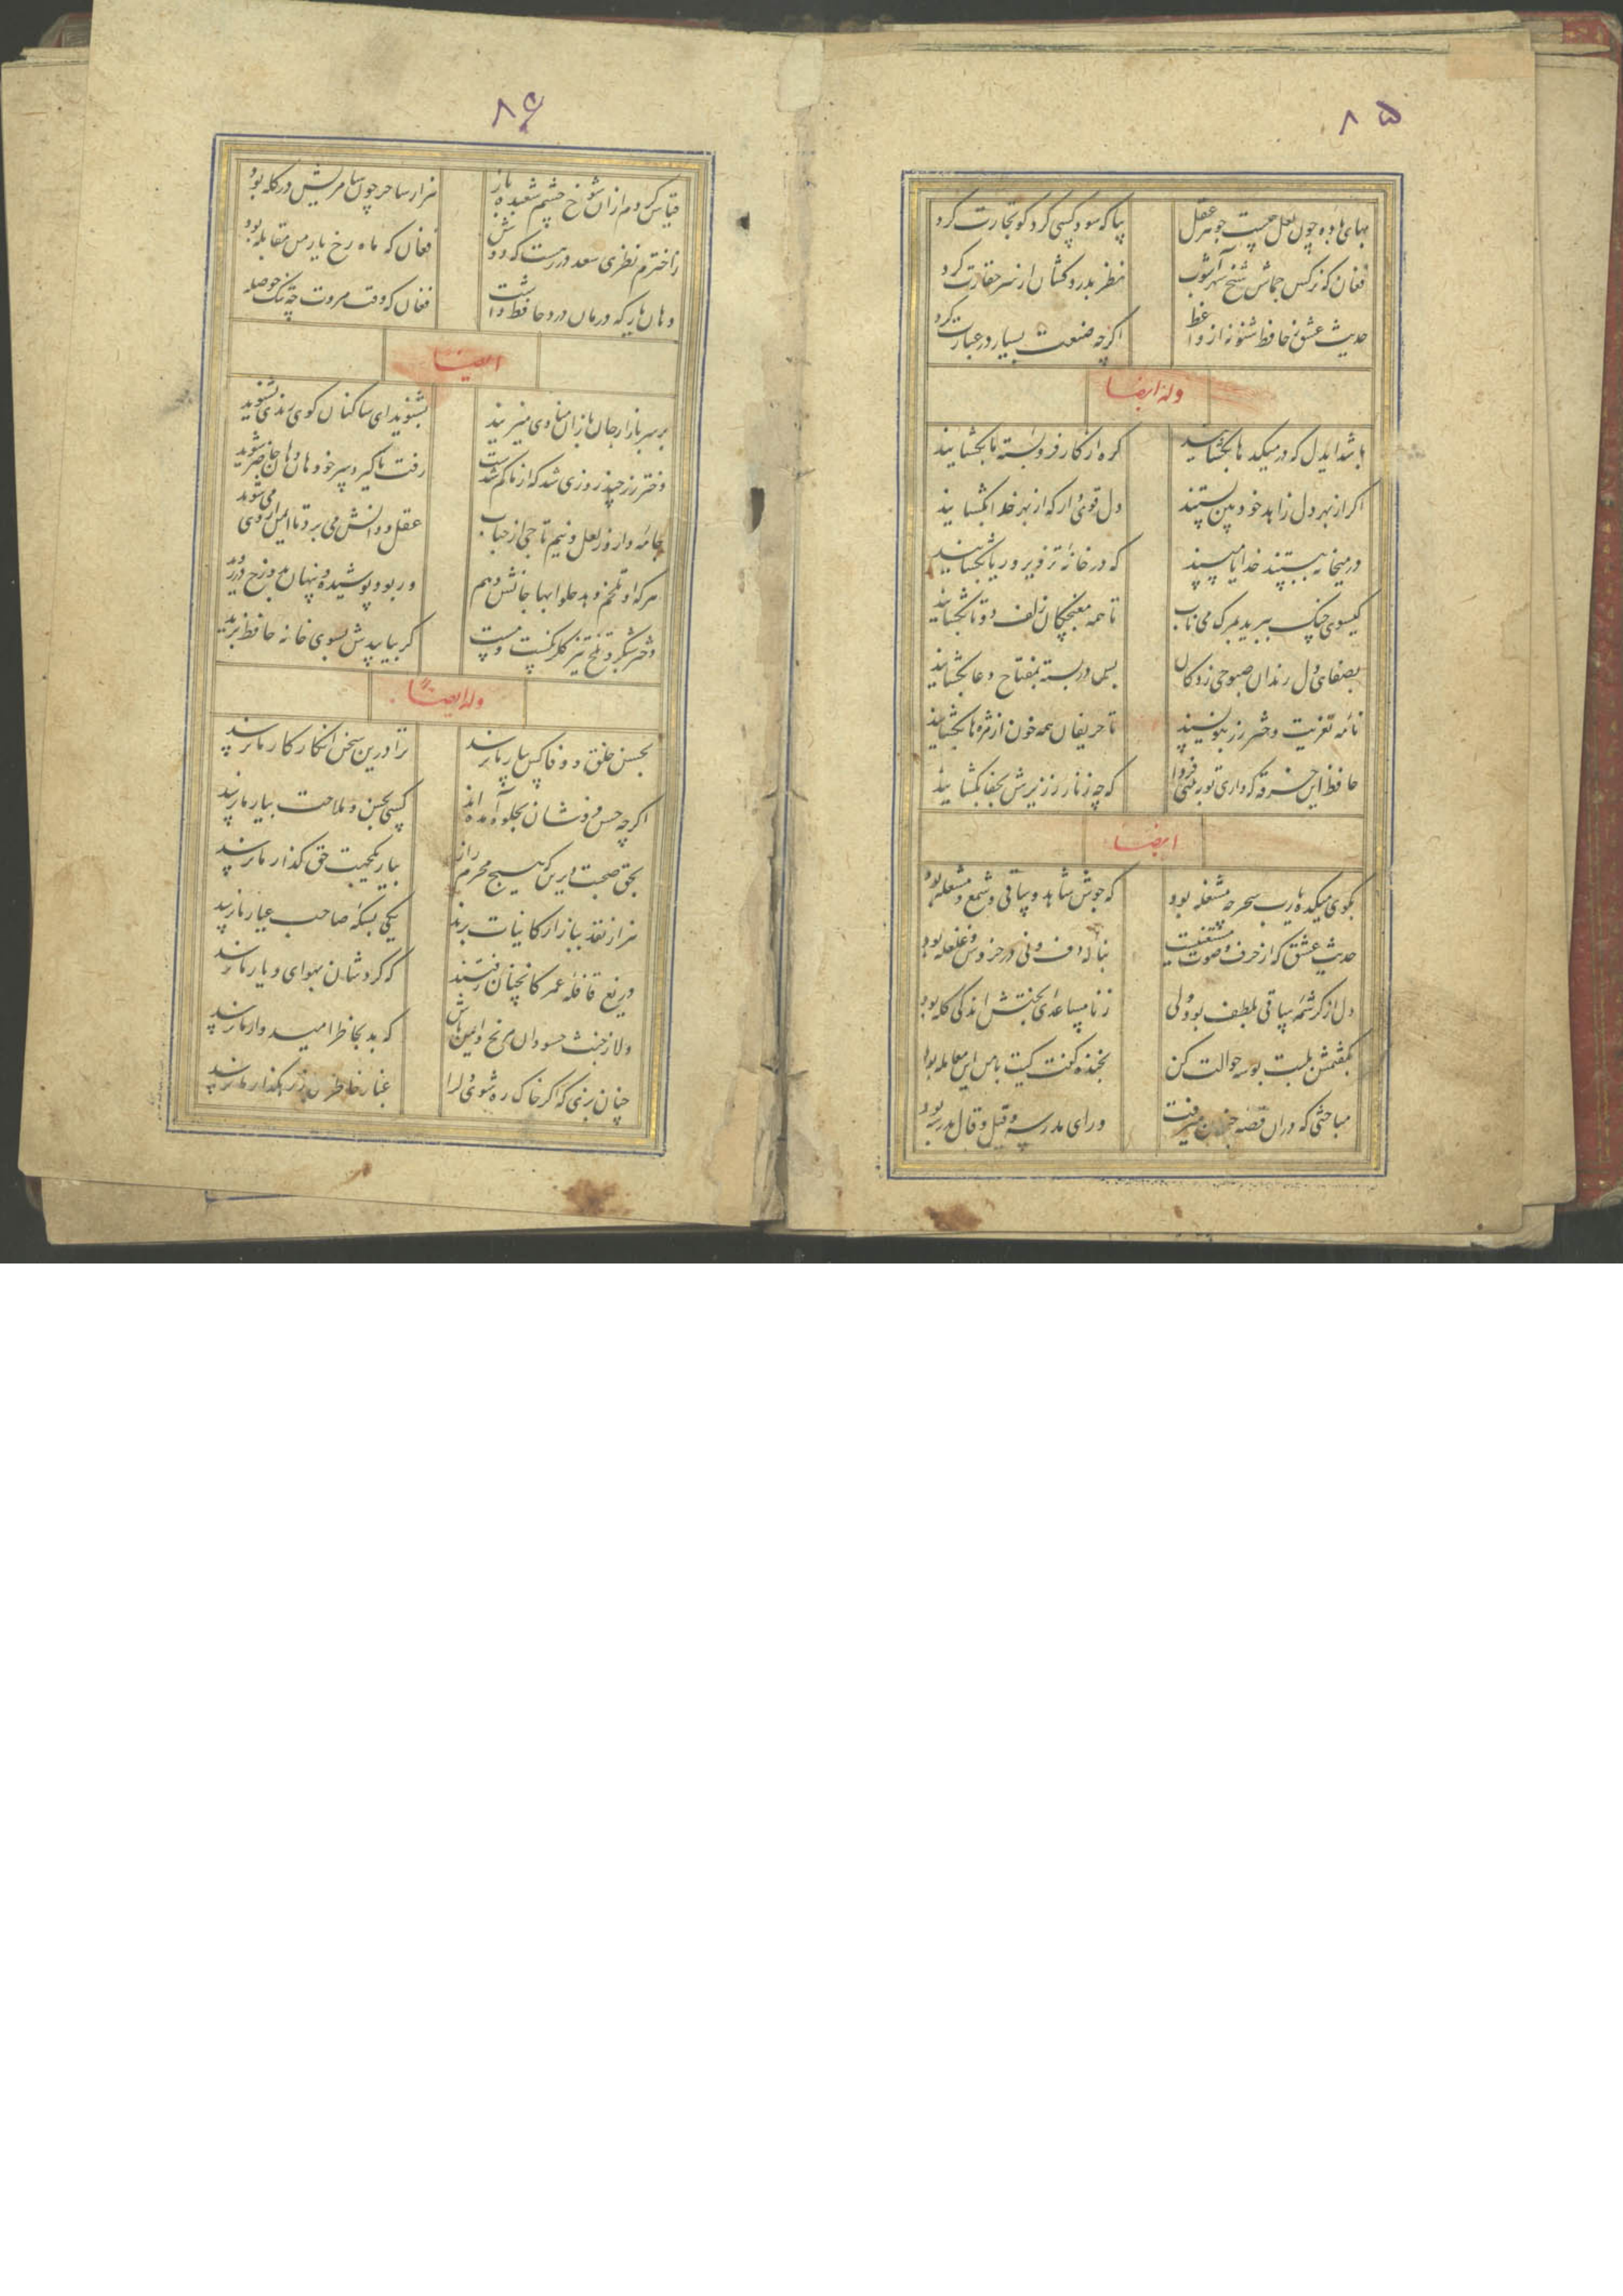 ۸۵
بهای باده چون لعل چیست جوهر عقل
بیا که سود کسی کرد کو تجارت کرد
فغان که نرگس جماش شیخ شهرآشوب
نظر بدردکشان از سر حقارت کرد
حدیث عشق ز حافظ شنو نه از واعظ
اگرچه صنعت بسیار در عبارت کرد
وله ایضا
باشد ایدل که در میکدها بگشایند
گره از کار فروبسته ما بگشایند
اگر از بهر دل زاهد خودبین بستند
دل قوی دار که از بهر خدا بگشایند
در میخانه ببستند خدایا مپسند
که در خانه تزویر و ریا بگشایند
گیسوی چنگ ببرید بمرگ می ناب
تا همه مغبچگان زلف دوتا بگشایند
بصفای دل رندان صبوحی زدگان
بس در بسته بمفتاح دعا بگشایند
نامه تعزیت دختر رز بنویسید
تا حریفان همه خون از مژه‌ها بگشایند
حافظ این خرقه که داری تو ببینی فردا
که چه زنار ز زیرش بجفا بگشایند
ایضا
بکوی میکده یارب سحر چه مشغله بود
که جوش شاهد و ساقی و شمع و مشعله بود
حدیث عشق که از حرف و صوت مستغنیست
بناله دف و نی در خروش و غلغله بود
دل از کرشمه ساقی بلطف بود ولی
ز نامساعدی بختش اندکی گله بود
بگفتمش بلبت بوسه حوالت کن
بخنده گفت کیت با من این معامله بود
مباحثی که در آن قصه جنون میرفت
ورای مدرسه و قیل و قال مدرسه بود
۸۶
قیاس کردم از آن شوخ چشم شعبده باز
هزار ساحر چون سامریش در گله بود
ز اخترم نظری سعد در رهست که دوش
فغان که ماه رخ یار من مقابله بود
دهان یار که درمان درد حافظ داشت
فغان که وقت مروت چه تنک حوصله بود
ایضا
بر سر بازار جان‌بازان منادی میزنند
بشنوید ای ساکنان کوی رندی بشنوید
دختر رز چند روزی شد که از ما گم شدست
رفت تا گیرد سر خود هان و هان حاضر شوید
جامه دارد ز لعل و نیم تاجی از حباب
عقل و دانش می برد تا ایمن از وی می شوید
هر که او تلخم دهد حلوا بها جانش دهم
ور بود پوشیده و پنهان بدوزخ در روید
دختر شبگرد تلخ تیز گلرنگست و مست
گر بیابیدش بسوی خانه حافظ برید
وله ایضا
بحسن خلق و وفا کس بیار ما نرسد
ترا درین سخن انکار کار ما نرسد
اگرچه حسن فروشان بجلوه آمده اند
کسی بحسن و ملاحت بیار ما نرسد
بحق صحبت دیرین که هیچ محرم راز
بیار یکجهت حق گذار ما نرسد
هزار نقد ببازار کاینات برند
یکی بسکه صاحب عیار ما نرسد
دریغ قافله عمر کانچنان رفتند
که گردشان بهوای دیار ما نرسد
دلا ز خبث حسودان مرنج و ایمن باش
که بد بخاطر امیدوار ما نرسد
چنان بزی که اگر خاک ره شوی دل را
غبار خاطری از رهگذار ما نرسد